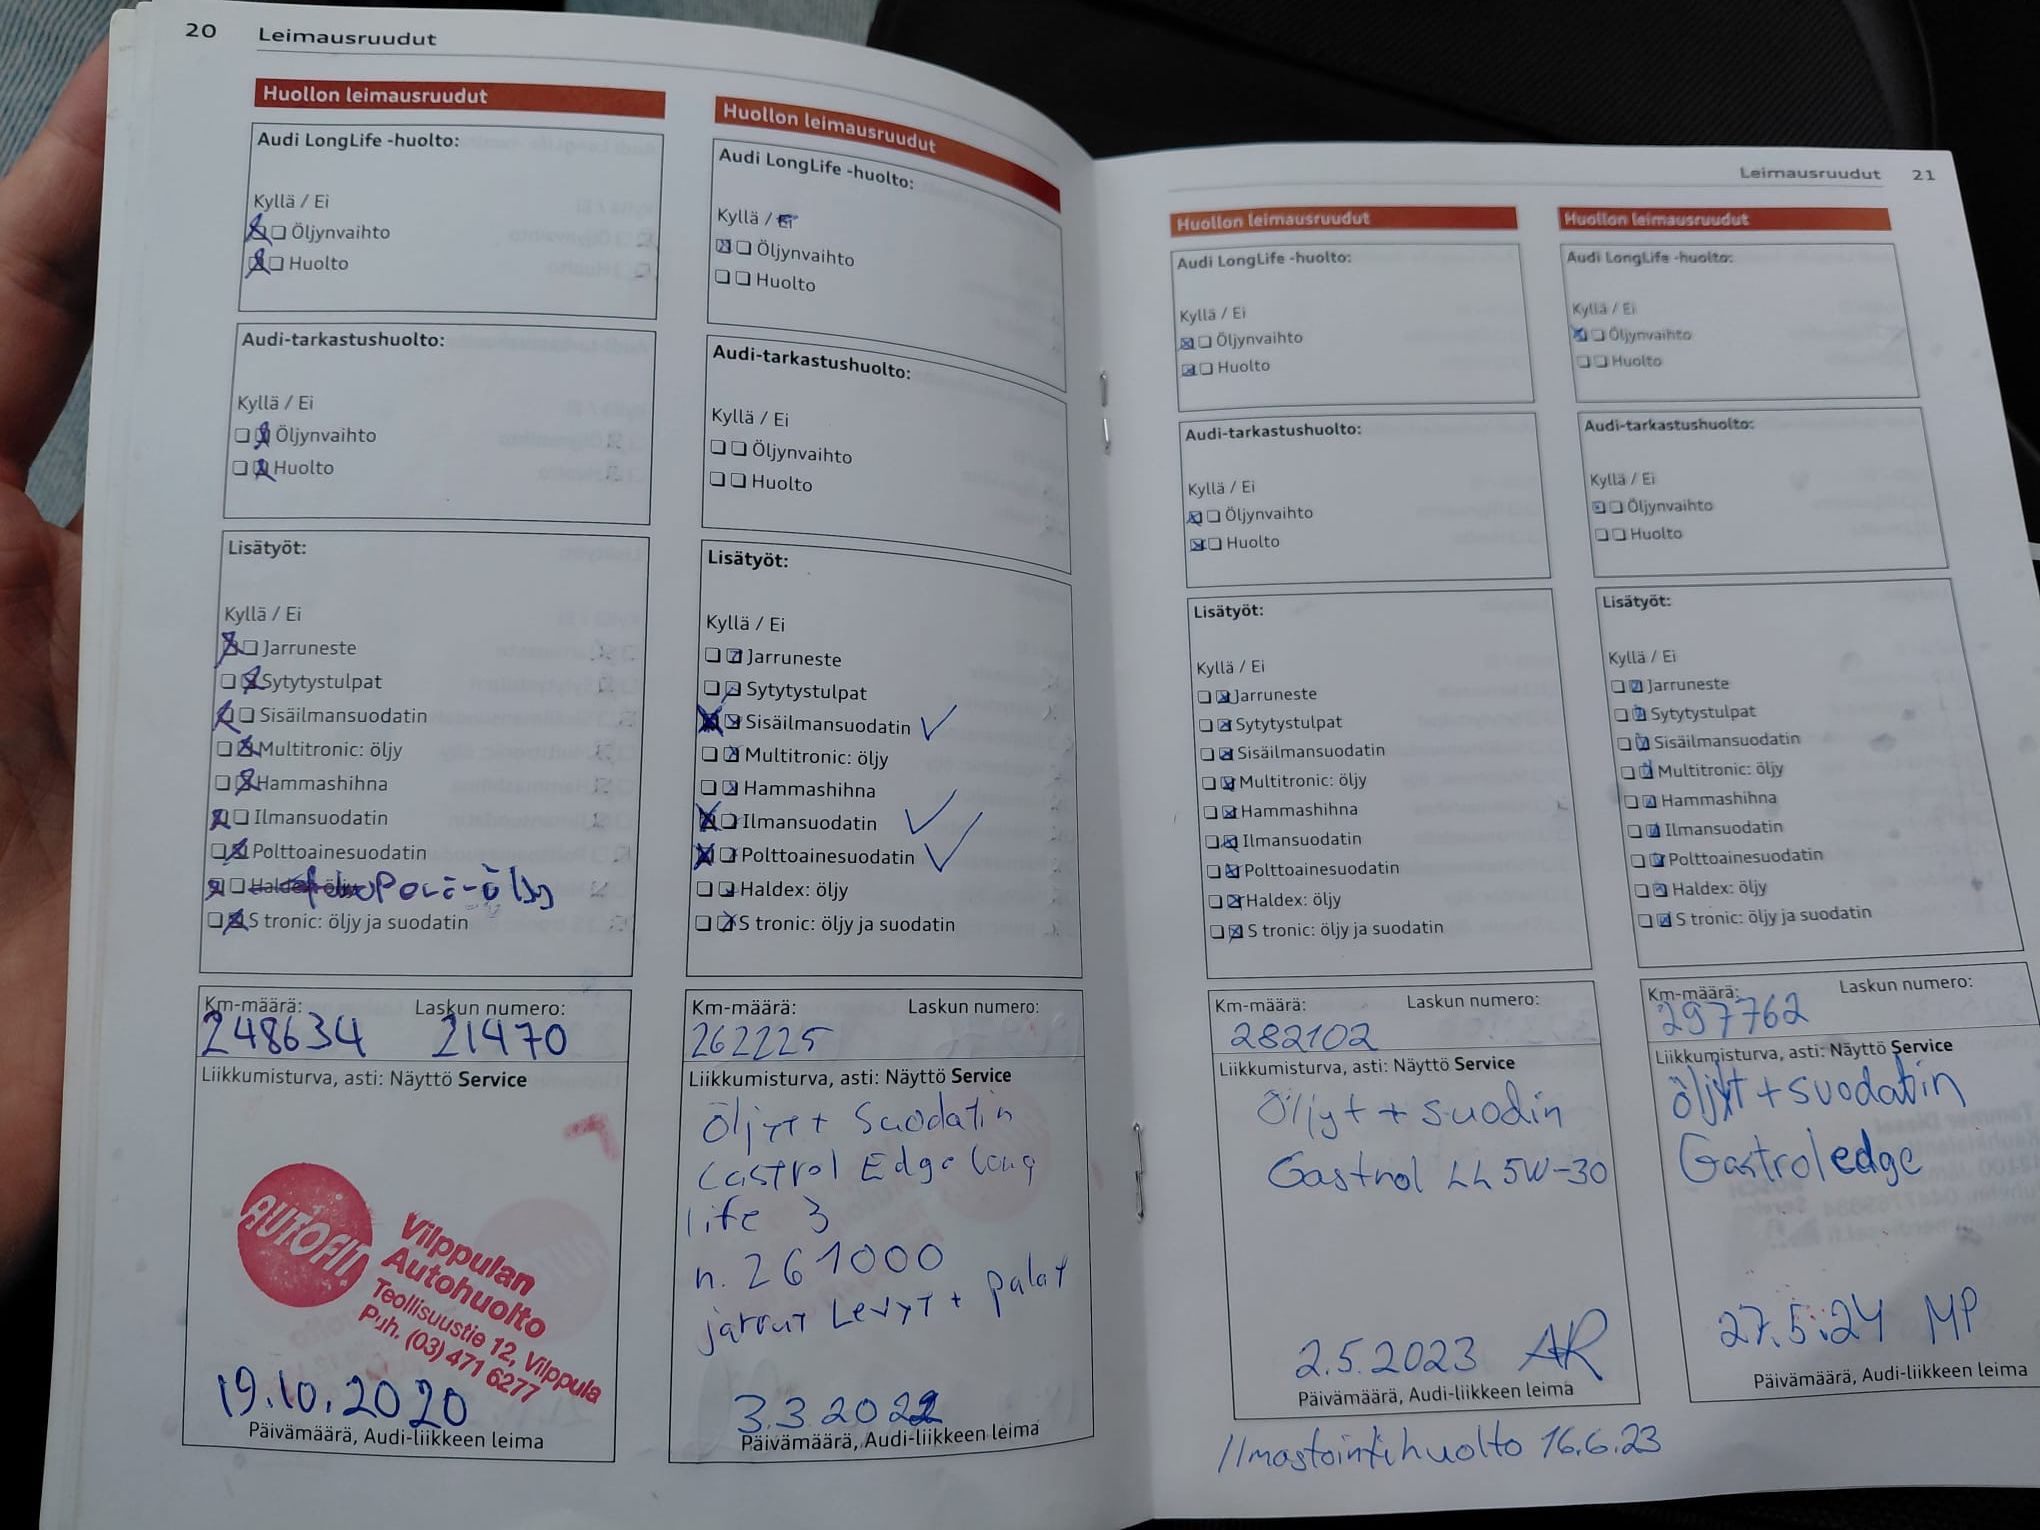 20 Leimausruudut
Huollon leimausruudut
Audi LongLife -huolto:
Kyllä / Ei
Öljynvaihto
Huolto
Audi-tarkastushuolto:
Kyllä / Ei
Öljynvaihto
Huolto
Lisätyöt:
Kyllä / Ei
Jarruneste
Sytytystulpat
Sisäilmansuodatin
Multitronic: öljy
Hammashihna
Ilmansuodatin
Polttoainesuodatin
Haldex: öljy
S tronic: öljy ja suodatin
Km-määrä: Laskun numero:
248634 21470
Liikkumisturva, asti: Näyttö Service
AUTOFIT
Vilppulan
Autohuolto
Teollisuustie 12, Vilppula
Puh. (03) 471 6277
19.10.2020
Päivämäärä, Audi-liikkeen leima
Huollon leimausruudut
Audi LongLife -huolto:
Kyllä / Ei
Öljynvaihto
Huolto
Audi-tarkastushuolto:
Kyllä / Ei
Öljynvaihto
Huolto
Lisätyöt:
Kyllä / Ei
Jarruneste
Sytytystulpat
Sisäilmansuodatin
Multitronic: öljy
Hammashihna
Ilmansuodatin
Polttoainesuodatin
Haldex: öljy
S tronic: öljy ja suodatin
Km-määrä: Laskun numero:
262225
Liikkumisturva, asti: Näyttö Service
Öljyt + Suodatin
Castrol Edge long
life 3
n. 261000
jarrut Levyt + palat
3.3.2022
Päivämäärä, Audi-liikkeen leima
Leimausruudut 21
Huollon leimausruudut
Audi LongLife -huolto:
Kyllä / Ei
Öljynvaihto
Huolto
Audi-tarkastushuolto:
Kyllä / Ei
Öljynvaihto
Huolto
Lisätyöt:
Kyllä / Ei
Jarruneste
Sytytystulpat
Sisäilmansuodatin
Multitronic: öljy
Hammashihna
Ilmansuodatin
Polttoainesuodatin
Haldex: öljy
S tronic: öljy ja suodatin
Km-määrä: Laskun numero:
282102
Liikkumisturva, asti: Näyttö Service
Öljyt + suodin
Castrol LL 5W-30
2.5.2023 AR
Päivämäärä, Audi-liikkeen leima
Ilmastointihuolto 16.6.23
Huollon leimausruudut
Audi LongLife -huolto:
Kyllä / Ei
Öljynvaihto
Huolto
Audi-tarkastushuolto:
Kyllä / Ei
Öljynvaihto
Huolto
Lisätyöt:
Kyllä / Ei
Jarruneste
Sytytystulpat
Sisäilmansuodatin
Multitronic: öljy
Hammashihna
Ilmansuodatin
Polttoainesuodatin
Haldex: öljy
S tronic: öljy ja suodatin
Km-määrä: Laskun numero:
297762
Liikkumisturva, asti: Näyttö Service
Öljyt + suodatin
Castrol edge
27.5.24 MP
Päivämäärä, Audi-liikkeen leima